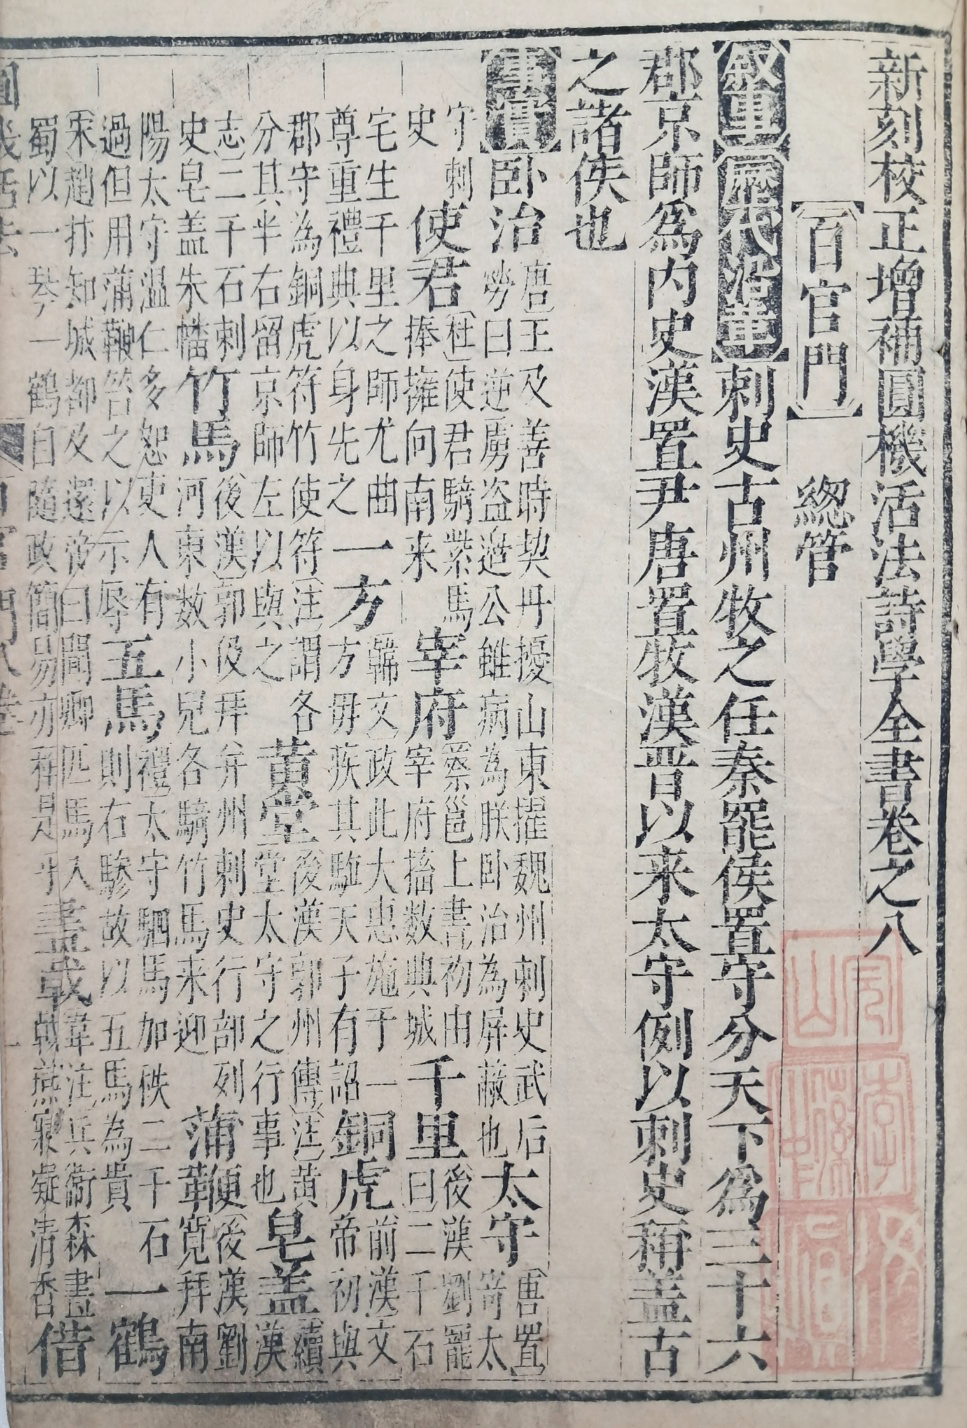 新刻校正增補圓機活法詩學全書卷之八
百官門 總管
叙事 歷代沿革 刺史古州牧之任秦罷侯置守分天下為三十六
郡京師為内史漢置尹唐置牧漢晋以来太守例以刺史稱盖古
之諸侯也
事實 卧治 唐王及善時契丹擾山東擢魏州刺史武后勞曰逆虜盗邇公雖病為朕卧治為屏蔽也 太守 唐置寄太
守刺史 使君 杜使君騎紫馬捧擁向南来 宰府 蔡邕上書初由宰府搐数典城 千里 後漢劉寵曰二千石
宅生千里之師尤曲尊重禮典以身先之 一方 羅文政此大惠施于一方毋疾其駈天子有詔 銅虎 前漢文帝初與
郡守為銅虎符竹使符注謂各分其半右留京師左以與之 黄堂 後漢郭州傳注黄堂太守之行事也 皂盖 續漢
志二千石刺史皂盖朱幡 竹馬 後漢郭伋拜并州刺史行部列河東数小兒各騎竹馬来迎 蒲鞭 後漢劉寛拜南
陽太守温仁多恕吏人有過但用蒲鞭笞之以示辱 五馬 禮太守駟馬加秩二千石則右驂故以五馬為貴 一鶴
宋趙抃知城都及還帝曰聞卿匹馬入蜀以一琴一鶴自隨政簡易亦稱是乎 畫戟 韋注兵衛森畫戟燕寢凝清香 借